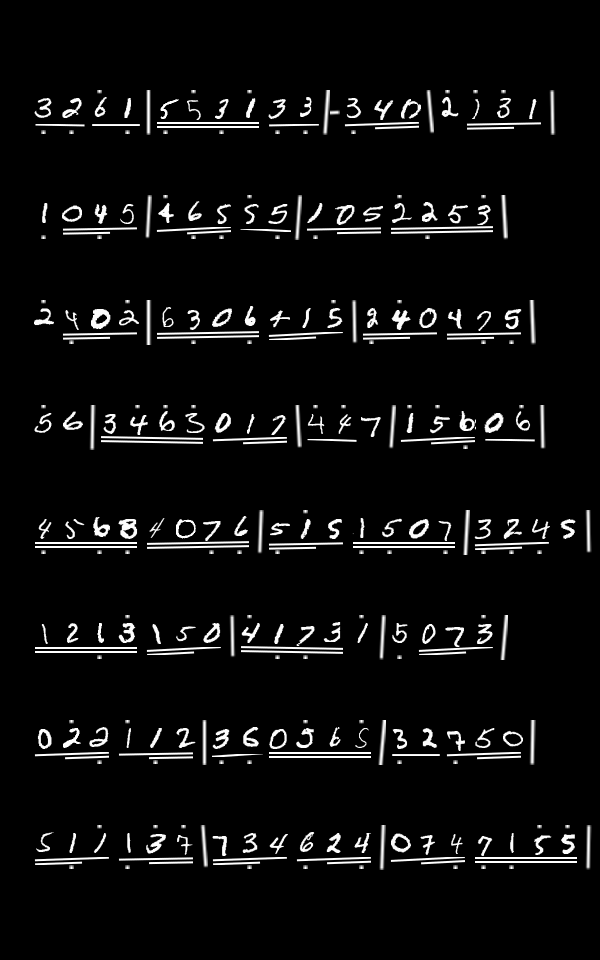 3261|553133|-340|2131
1045|46555|1052253
2402|6306+15|240475
56|3463017|447|15606
45684076|515|1507|3245
1213150|41731|5073
022112|360565|32750
511137|734624|0747155